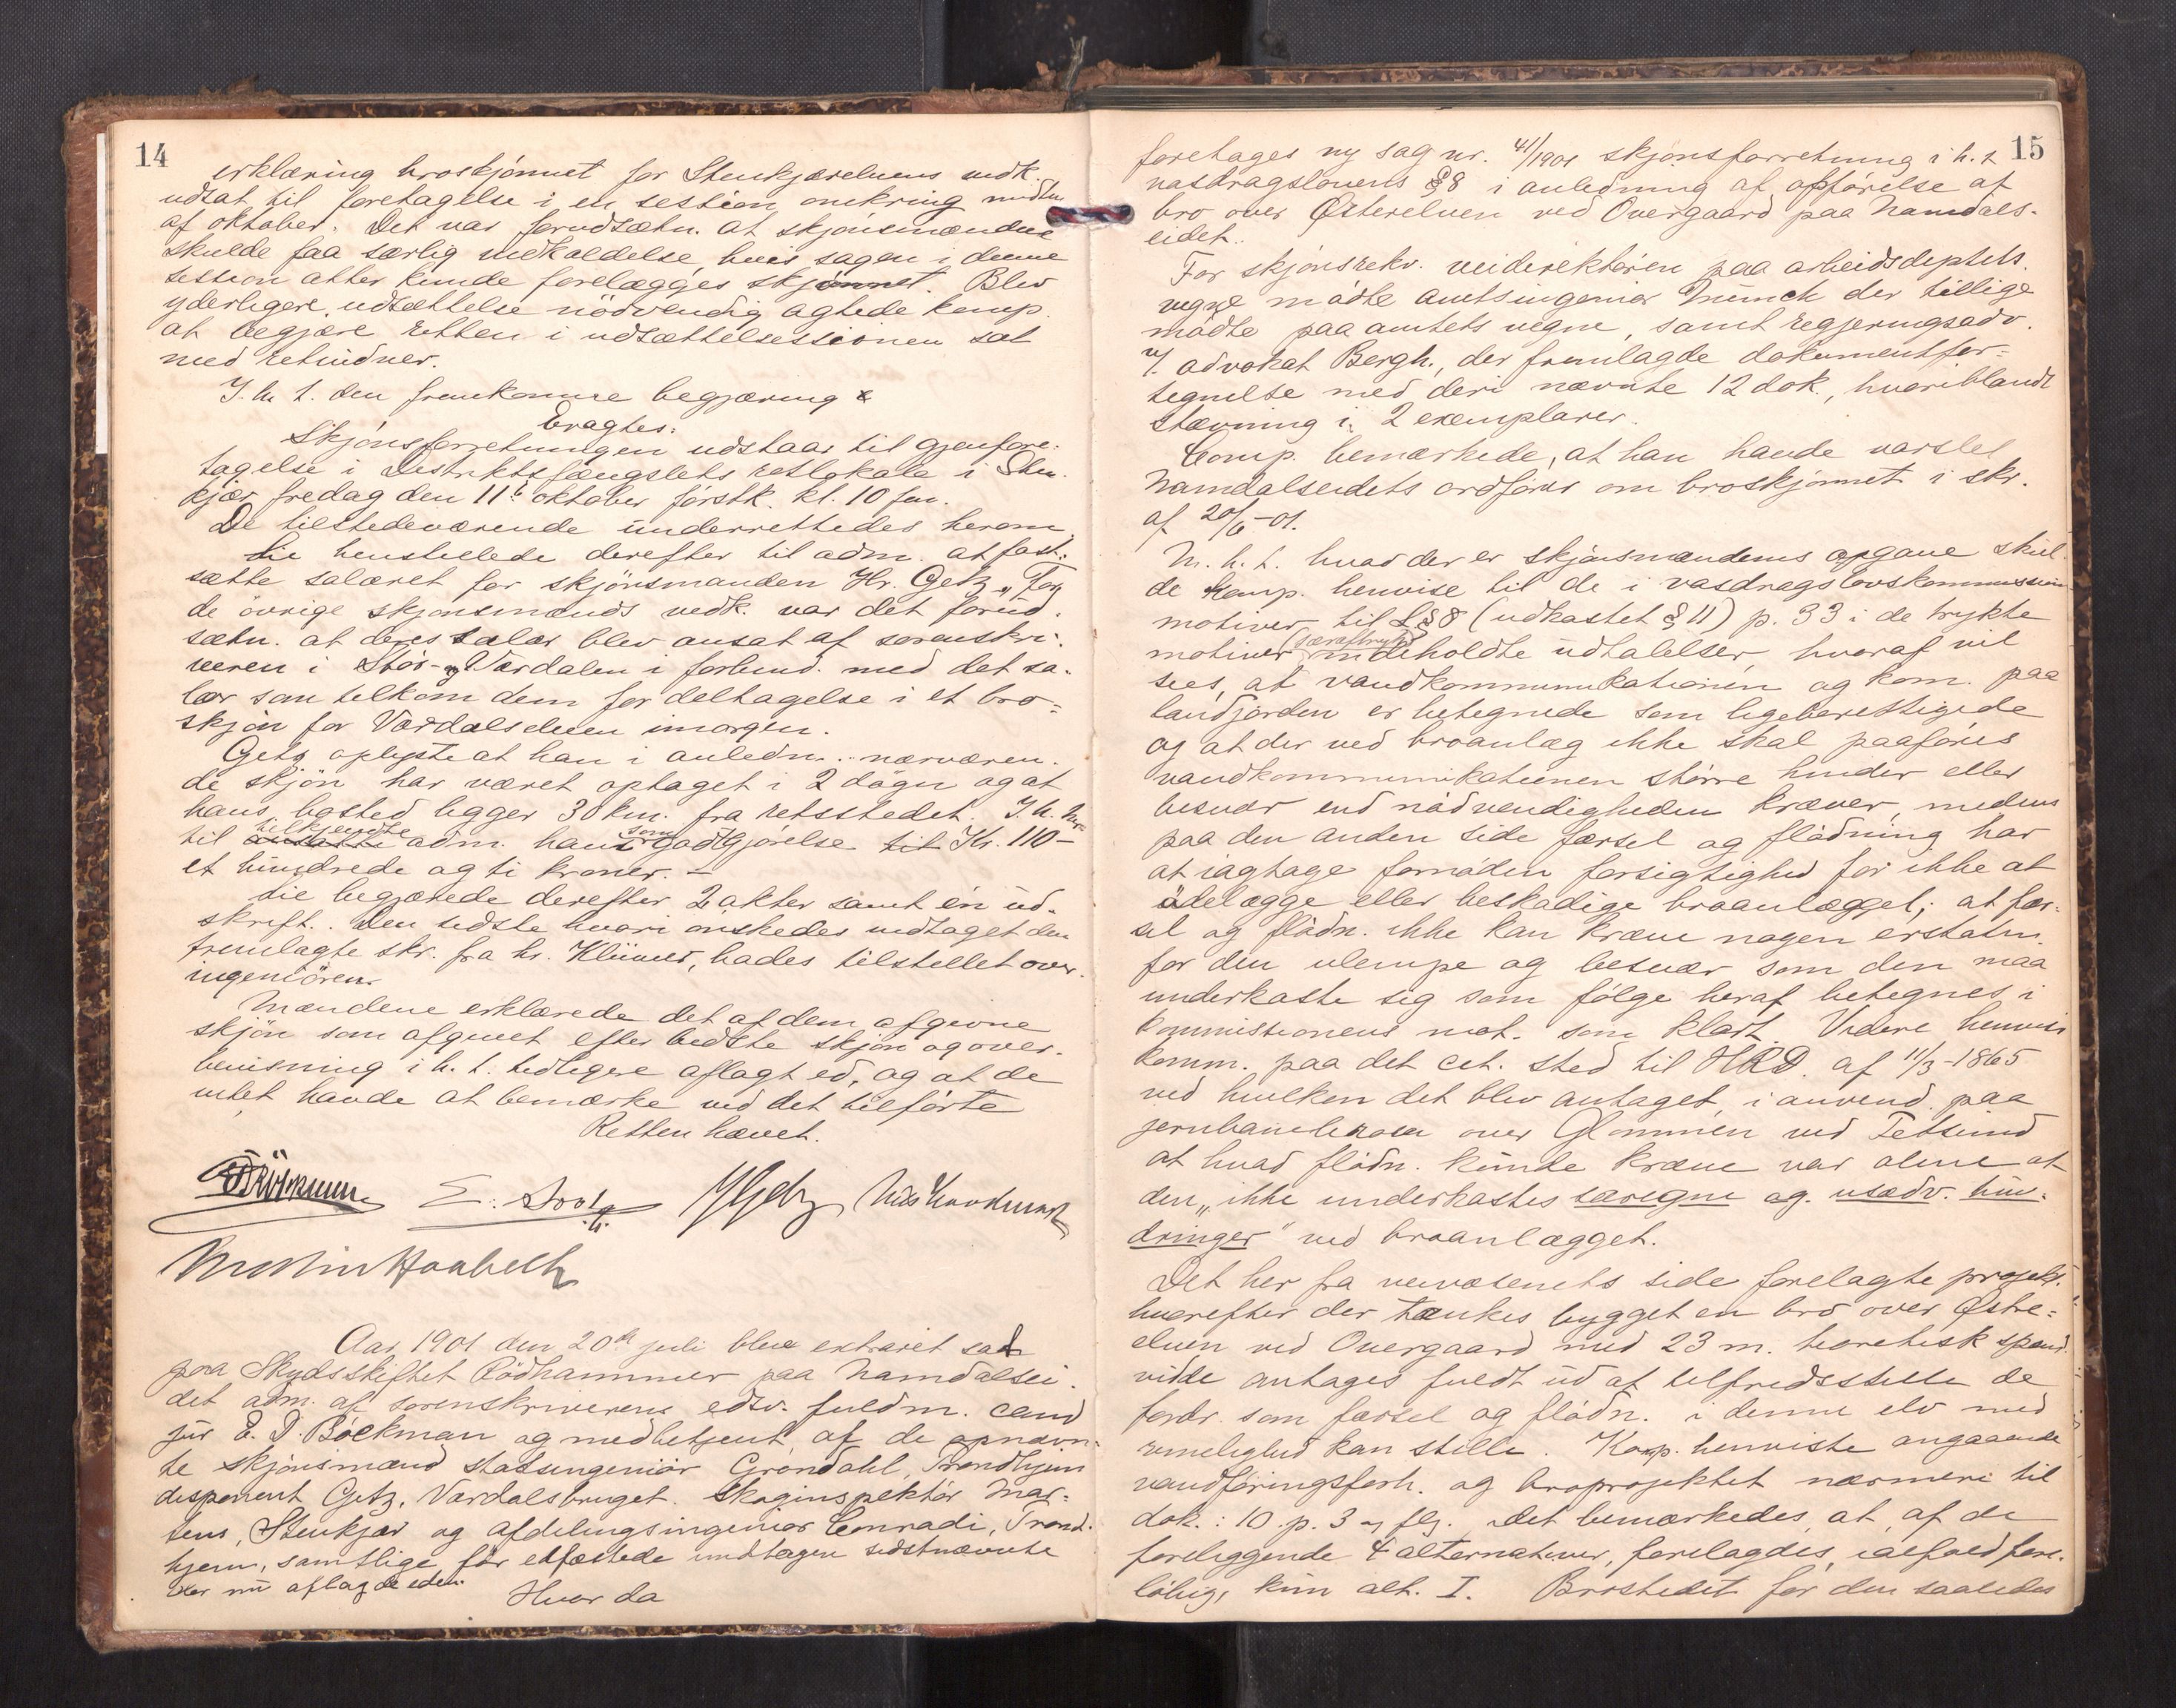 14
erklæring broskjønnet for Stenkjærelvens vedk.
udsat til foretagelse i en session omkring midten
af oktober. Det var forudsætn. at skjønsmændene
skulde faa særlig indkaldelse, hvis sagen i denne
session atter kunde forelægges skjønnet. Blev
yderligere udsættelse nödvendig agtede komp.
at begjære retten i udsættelsessionen sat
med retsvidner.
I. h. t. den fremkomne begjæring
Eragtes:
Skjønsforretningen udstaar til gjenfore-
tagelse i Distriktsfængslets retslokale i Sten-
kjær fredag den 11te oktober førstk. kl. 10 fm.
De tilstedeværende underrettedes herom
Die henstillede derefter til adm. at fast-
sætte salæret for skjönsmanden Hr. Getz. For
de övrige skjønsmænds vedk. var det forud-
sætn. at deres salær blev ansat af sorenskri-
veren i Stör- og Værdalen i forbind. med det sa-
lær som tilkom dem for deltagelse i et bro-
skjön for Værdalselven imorgen.
Getz oplyste at han i anledn. nærværen-
de skjön har været optaget i 2 dögn og at
hans bosted ligger 30 km. fra retsstedet. I. h.
til tilkjendte adm. ham som godtgjørelse til Kr. 110 -
et hundrede og ti kroner. -
Die begjærede derefter 2 akter samt én ud-
skrift. Den sidste hvori önskedes indtaget den
fremlagte skr. fra hr. Klüwer, bades tilstillet over-
ingeniören.
Mændene erklærede det af dem afgivne
skjön som afgivet efter bedste skjön og over-
bevisning i h. t. tidligere aflagt ed, og at de
intet havde at bemærke ved det tilførte
Retten hævet.
E. D. Böckman E. Getz Nils
Martin Haabeth
Aar 1901 den 20de juli blev extraret sat
paa Skydsskiftet Rödhammer paa Namdalsei-
det adm. af sorenskriverens edsv. fuldm. cand
jur E. D. Böckman og medbetjent af de opnævn-
te skjönsmænd statsingeniör Gröndahl, Trondhjem
disponent Getz, Værdalsbruget. Skoginspektör Mar-
tens, Stenkjær og afdelingsingeniör Conradi, Trond-
hjem, samtlige før edfæstede undtagen sidstnævnte
der nu aflagde eden.
Hvor da
15
foretages ny sag nr. 41/1901 skjønsforretning i h. t
vasdragslovens § 8 i anledning af opførelse af
bro over Østerelven ved Overgaard paa Namdals-
eidet.
For skjønsrekv. veidirektøren paa arbeidsdeptets
vegne mødte amtsingeniør Münch der tillige
mødte paa amtets vegne, samt regjeringsadv.
v/ advokat Bergh., der fremlagde dokumentfor-
tegnelse med deri nævnte 12 dok., hvoriblandt
Stævning i 2 exemplarer.
Comp. bemærkede, at han havde varslet
Namdalseidets ordfører om broskjønnet i skr.
af 20/6-01.
M. h. t. hvad der er skjønsmændenes opgave skul-
de komp. henvise til de i vasdragslovskommissionens
motiver til L § 8 (udkastet § 11) p. 33 i de trykte
motiver indeholdte udtalelser, hvoraf vil
sees, at vandkommunikationen og kom. paa
landjorden er betegnede som ligeberettigede
og at der ved broanlæg ikke skal paaføres
vandkommunikationen større hinder eller
besvær end nödvendigheden kræver, medens
paa den anden side færsel og flødning har
at iagttage fornöden forsigtighed for ikke at
ödelægge eller beskadige broanlægget; at fær-
sel og flödn. ikke kan kræve nogen erstatn.
for den ulempe og besvær som den maa
underkaste sig som følge heraf betegnes i
kommissionens mot. som klart. Videre henviser
komm. paa det cit. sted til HRD. af 11/3-1865
ved hvilken det blev antaget, i anvend. paa
jernbanebroen over Glommen ved Fetsund
at hvad flödn. kunde kræve var alene at
den „ikke underkastes særegne og usædv. hin-
dringer" ved broanlægget.
Det her fra veivæsenets side forelagte projekt.
hvorefter der tænkes bygget en bro over Østre-
elven ved Overgaard med 23 m. theoretisk spænd-
vidde antages fuldt ud at tilfredsstille de
fordr. som færsel og flödn. i denne elv med
rimelighed kan stille. Komp. henviste angaaende
vandföringsforh. og broprojektet nærmere til
dok.: 10. p. 3 og flg. Det bemærkedes, at af de
foreliggende 4 alternativer, forelagdes, ialfald fore-
löbig, kun alt. I. Brostedet for den saaledes